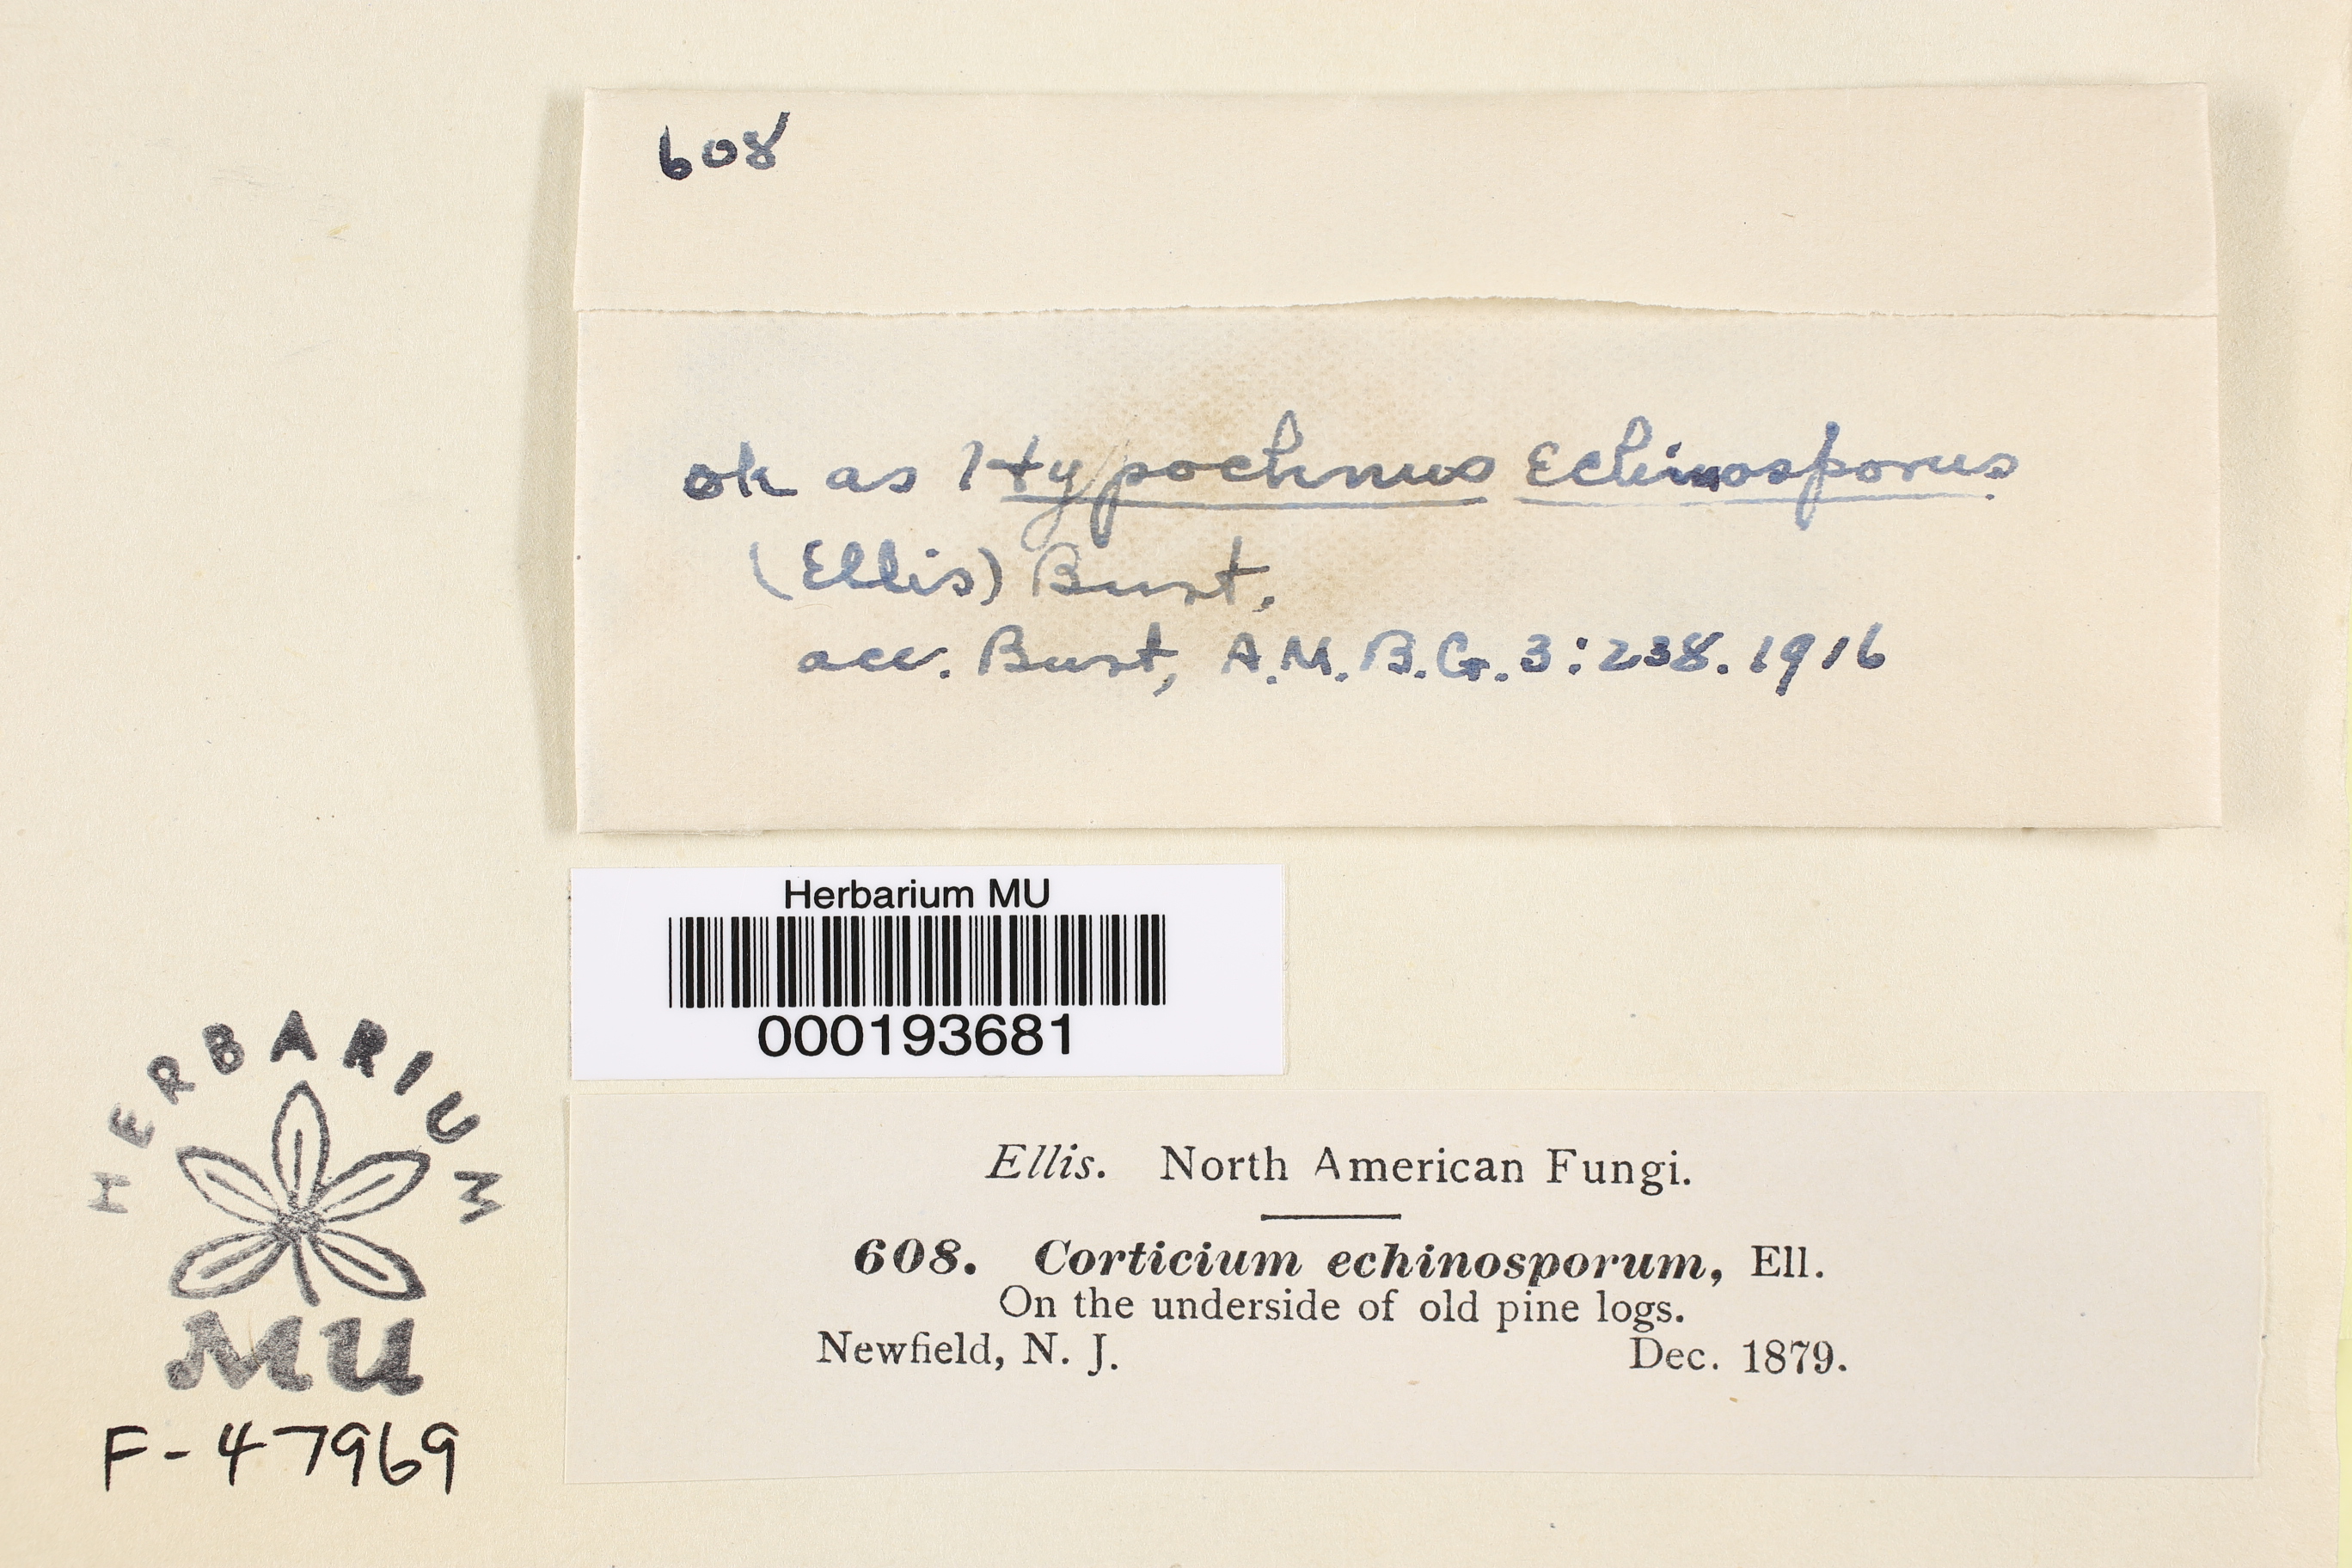 608
ok as Hypochnus Echinosporus
(Ellis) Burt,
acc. Burt, A.M.B.G. 3:238. 1916
Herbarium MU
000193681
HERBARIUM
MU
F-47969
Ellis. North American Fungi.
608. Corticium echinosporum, Ell.
On the underside of old pine logs.
Newfield, N. J. Dec. 1879.